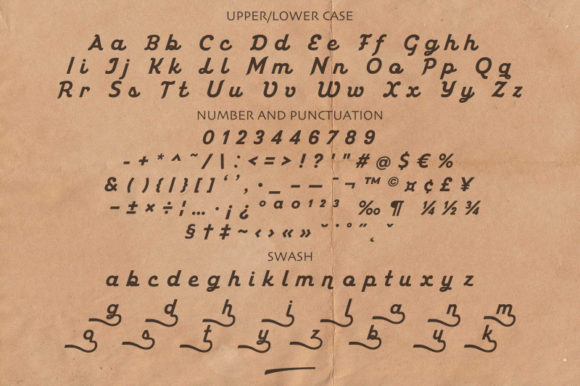 UPPER/LOWER CASE
Aa Bb Cc Dd Ee Ff Gghh
Ii Jj Kk Ll Mm Nn Oo Pp Qq
Rr Ss Tt Uu Vv Ww Xx Yy Zz
NUMBER AND PUNCTUATION
0 1 2 3 4 4 6 7 8 9
- + * ^ ~ / \ : < = > ! ? ' " # @ $ € %
& ( ) { | } [ ] ‘ ’ , · _ – — ¯ ¬ ™ © ¤ ¢ £ ¥
– ± × ÷ ¦ … · ¡ ¿ º ª º ¹ ² ³ ‰ ¶ ¼ ½ ¾
§ † ‡ ~ ‹ › « » ˇ ˙ ˚ ˝ ˛ ˘
SWASH
a b c d e g h i k l m n o p t u x y z
g d h i l a n m
o s t y z b u k